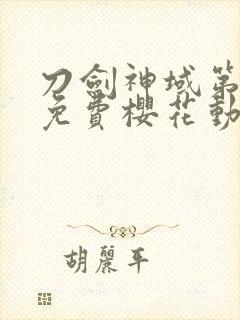 刀劍神域第
免費櫻花動
胡麗平